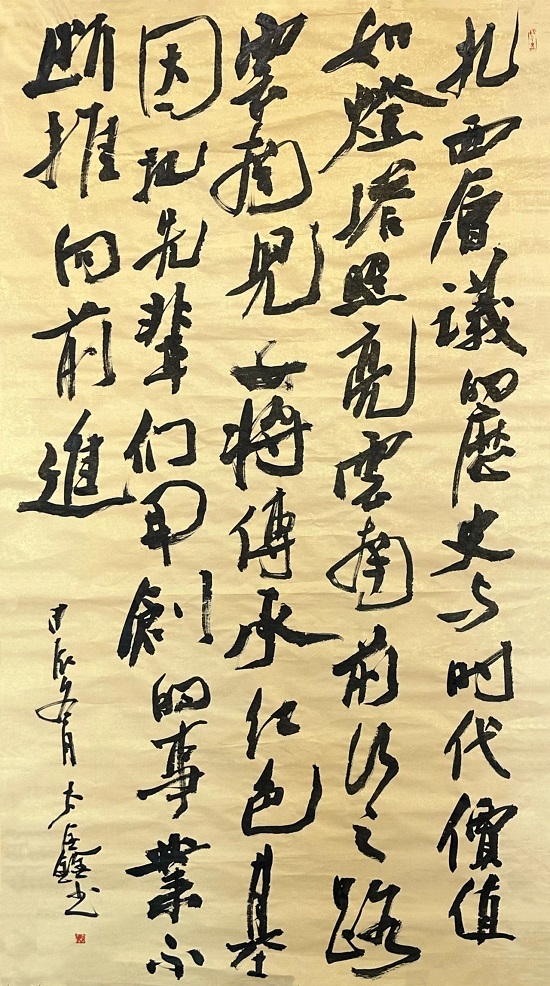 扎西會議的歷史与时代價值
如燈塔照亮雲南前行之路
雲南児女將傳承红色基
因把先輩们開創的事業不
断推向前進
甲辰年
書